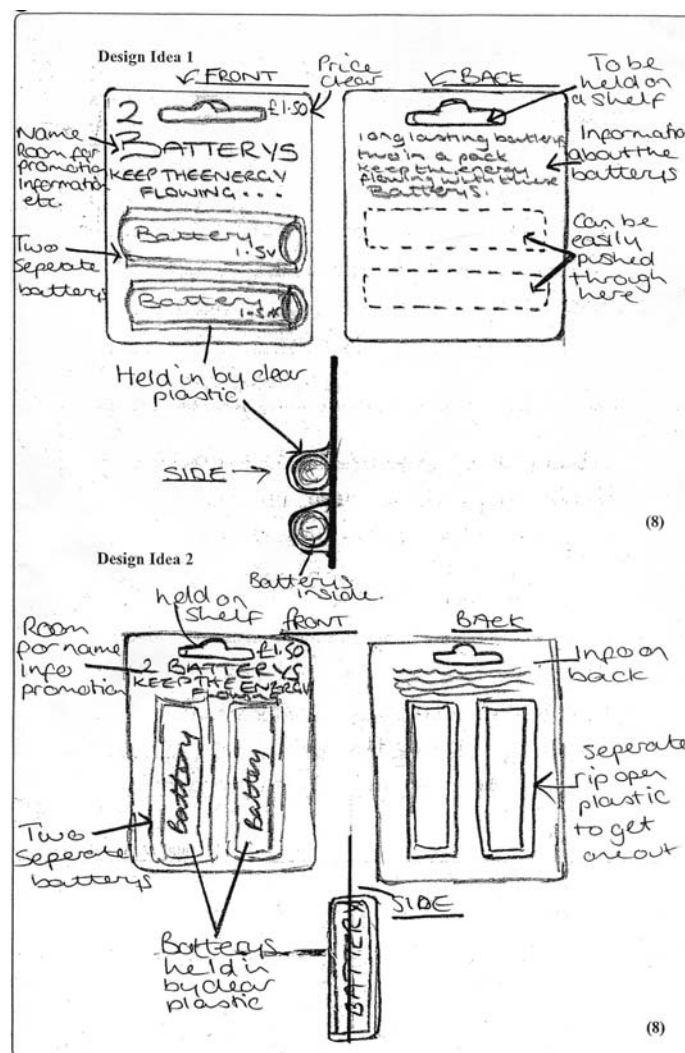 Design Idea 1
FRONT
Price
clear
BACK
To be
held on
a shelf
2
£1.50
BATTERYS
KEEP THE ENERGY
FLOWING...
Name
Room for
promotion
information
etc.
Battery
1.5v
Battery
Two
Seperate
batterys
long lasting batterys
two in a pack
keep the energy
flowing with these
Batterys.
Information
about the
batterys
Can be
easily
pushed
through
here
Held in by clear
plastic
SIDE
+
-
Batterys
inside
(8)
Design Idea 2
held on
shelf
FRONT
BACK
Room
for name
info
promotion
£1.50
2 BATTERYS
KEEP THE ENERGY
FLOWING
Battery
Battery
Two
Seperate
batterys
Info on
back
seperate
rip open
plastic
to get
one out
Batterys
held in
by clear
plastic
SIDE
BATTERY
(8)